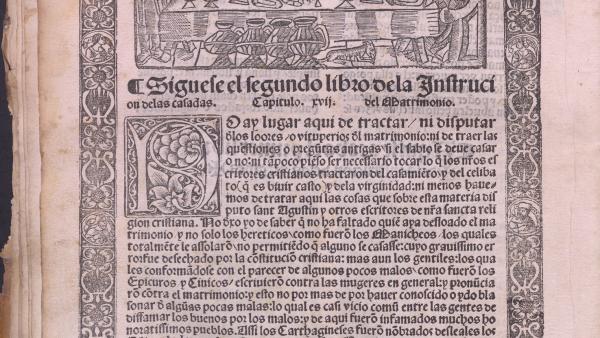 ¶ Siguese el segundo libro dela Instruci
on delas casadas. Capitulo. xvij. del Matrimonio.
NO ay lugar aqui de tractar/ ni disputar
dͤlos loores/ o vituperios dͤl matrimonio: ni de traer las
questiones o pregūtas antigas si el sabio se deue casar
o no: ni tāpoco piēso ser necessario tocar lo q̄ los nr̄os es
critores cristianos tractaron del casamiēto/ y del celiba
to(q̄ es biuir casto/ y dela virginidad: ni menos haue-
mos de tratar aqui las cosas que sobre esta materia dis
puto sant Agustin y otros escritores de nr̄a sancta reli
gion cristiana. No dexo yo de saber q̄ no ha faltado quiē aya desloado el ma
trimonio y no solo los hereticos: como fuerō los Manicheos/ los quales
totalmēte le assolarō/ no permitiēdo q̄ alguno se casasse: cuyo grauissimo er
ror fue desechado por la cōstituciō cristiana: mas aun los gentiles: los qua
les conformādose con el parecer de algunos pocos malos/ como fuerō los
Epicuros y Cinicos/ escriuierō contra las mugeres en general: y pronūcia
rō cōtra el matrimonio: y esto no por mas de por hauer conoscido o ydo bla
sonar dͤ algūas pocas malas: lo qual es casi vicio comū entre las gentes de
diffamar los buenos por los malos: y de aqui fuerō infamados muchos ho
noratissimos pueblos. Assi los Carthagineses fuerō nōbrados desleales los